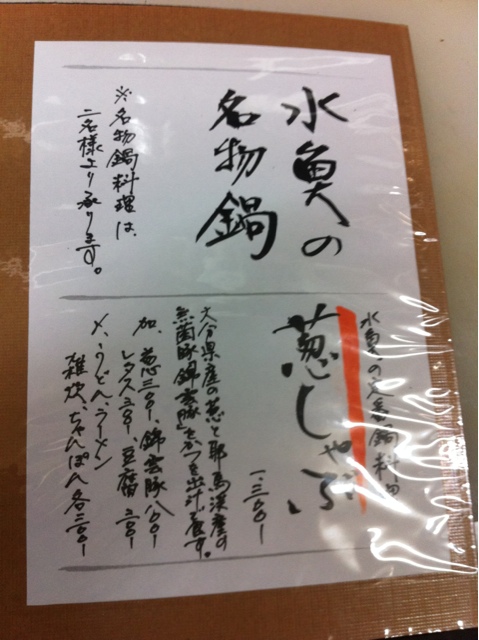 水奥の
名物鍋
※名物鍋料理は、
二名様より承ります。
水奥の定番鍋料理
葱しゃぶ
一、三〇〇ー
大分県産の葱と耶馬溪産の
無菌豚錦雲豚をかつを出汁で
加、葱三〇〇ー、錦雲豚八〇〇ー
レタス三〇〇ー、豆腐三〇〇ー
〆、うどん、ラーメン
雑炊、ちゃんぽん各三〇〇ー